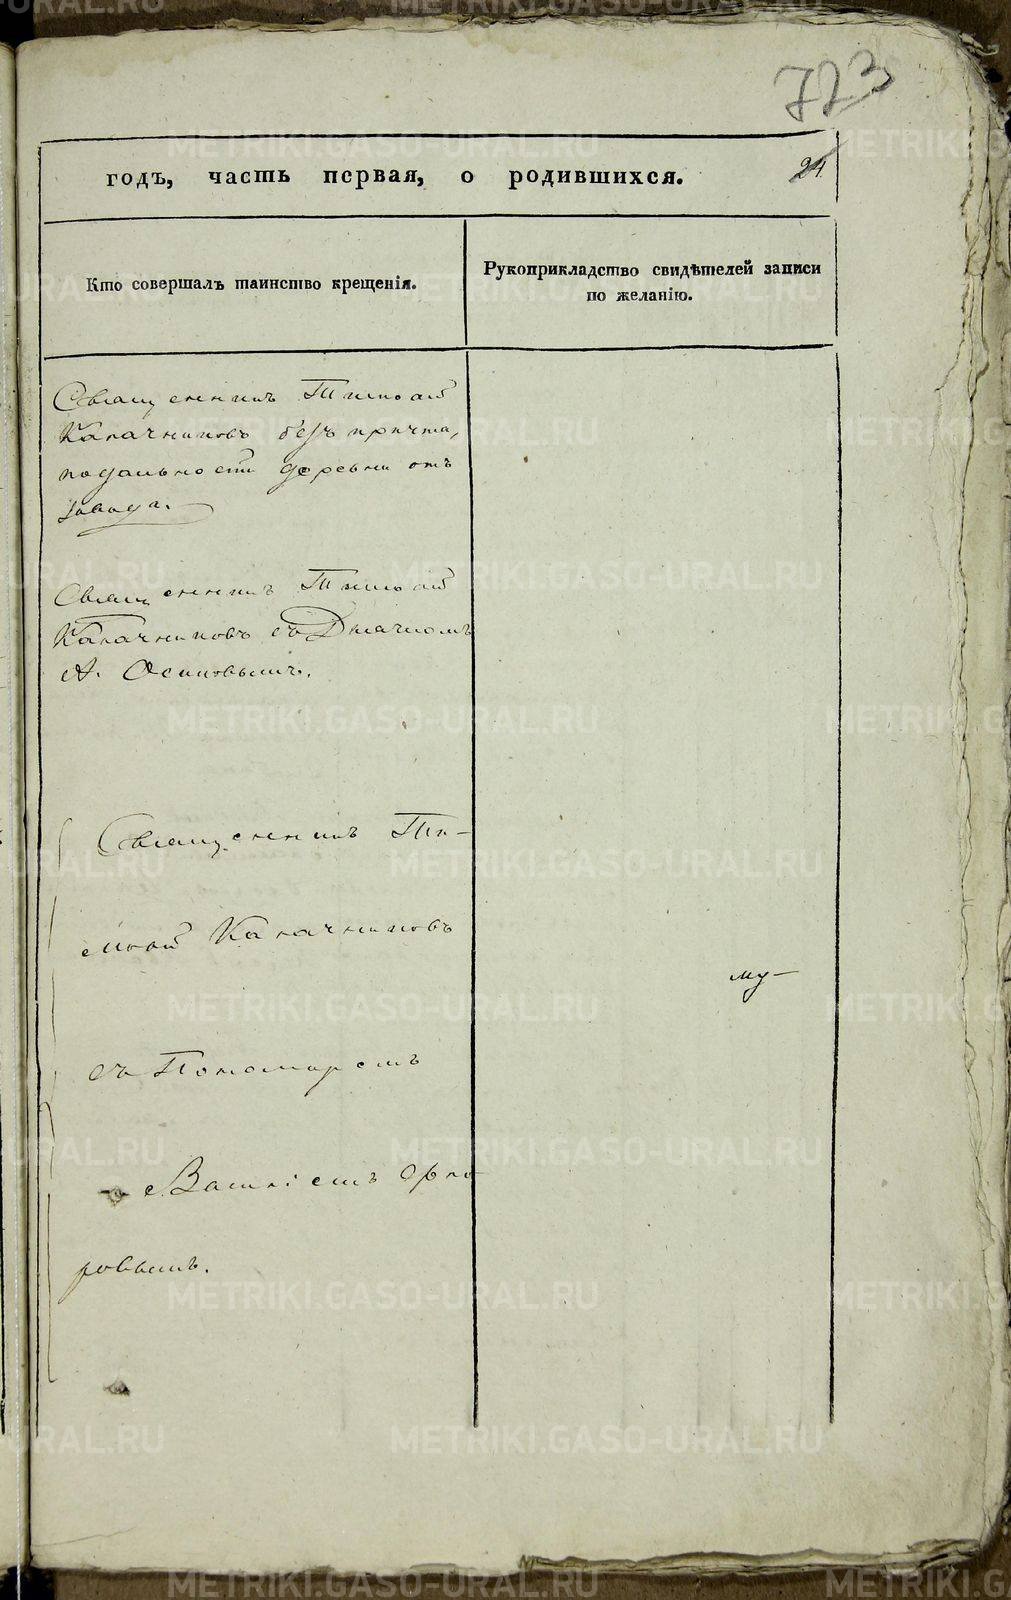 723
24
годъ, часть первая, о родившихся.
Кто совершалъ таинство крещенія.
Рукоприкладство свидѣтелей записи
по желанію.
Священникъ Тимофей
Калачниковъ безъ причта,
подальности деревни отъ
завода.
Священникъ Тимофей
Калачниковъ съ Дьячкомъ
А. Осиповымъ.
Священникъ Ти-
мофей Калачниковъ
му-
съ Пономаремъ
Ваткіемъ
ровымъ.
METRIKI.GASO-URAL.RU